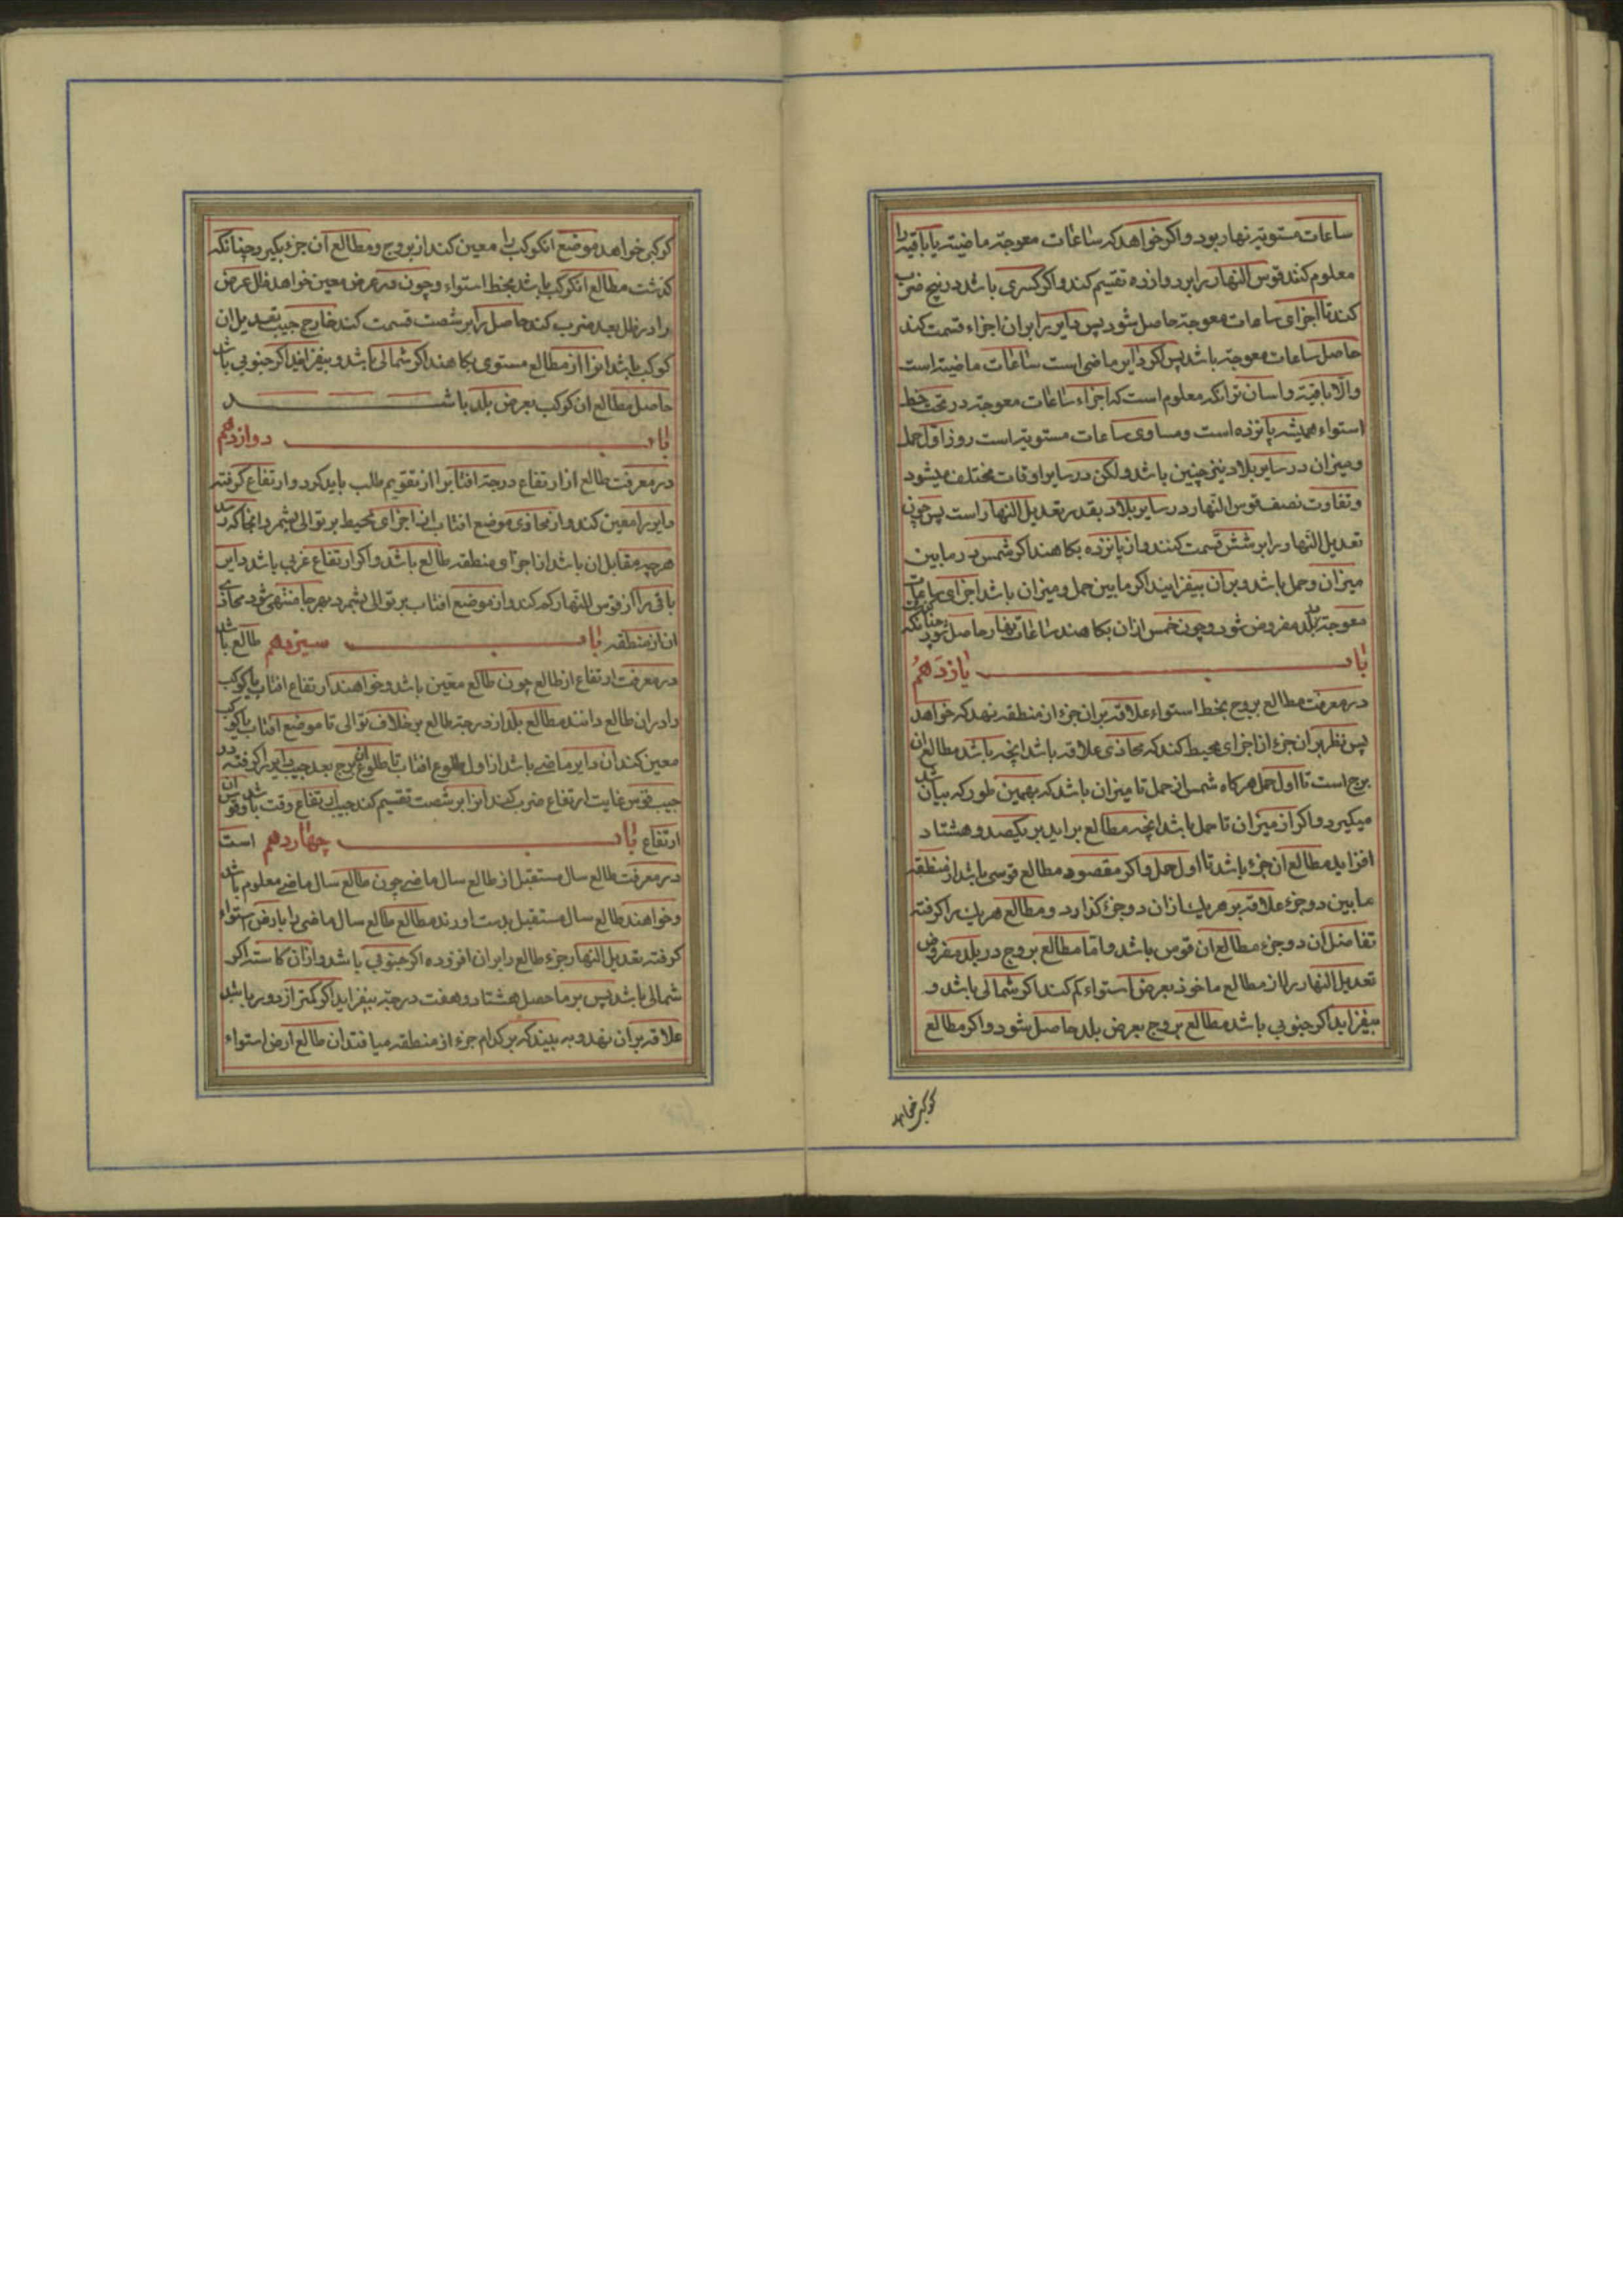 ساعات مستویه نهار بود و اکر خواهد که ساعات معوجه ماضیه یا باقیه را
معلوم کنند قوس النهار را بر دوازده تقسیم کند و اکر کسری باشد در پنج ضرب
کند تا اجزای ساعات معوجه حاصل شود پس دایر را بران اجزاء قسمت کند
حاصل ساعات معوجه باشد پس اکر دایر ماضی است ساعات ماضیه است
والا باقیه و اسان تر انکه معلوم است که اجزاء ساعات معوجه در تحت خط
استواء همیشه پانزده است و مساوی ساعات مستویه است روز اول حمل
و میزان در سایر بلاد نیز چنین باشد ولکن در سایر اوقات مختلف میشود
و تفاوت نصف قوس النهار در سایر بلاد بقدر تعدیل النهار است پس چون
تعدیل النهار را بر شش قسمت کنند و از پانزده بکاهند اکر شمس در مابین
میزان و حمل باشد و بران بیفزایند اکر مابین حمل و میزان باشد اجزای ساعات
معوجه بلد مفروض شود و چون خمس ازان بکاهند ساعات نهار حاصل شود چنانکه
باب یازدهم
در معرفت مطالع بروج بخط استواء علاقه بران جزء از منطقه نهد که خواهد
پس نظر بران جزء از اجزای محیط کند که محاذی علاقه باشد انچه باشد مطالع ان
برج است تا اول حمل هرکاه شمس از حمل تا میزان باشد که بهمین طور که بیان شد
میکیرد و اکر از میزان تا حمل باشد انچه مطالع براید بر یکصد و هشتاد
افزاید مطالع ان جزء باشد تا اول حمل و اکر مقصود مطالع قوسی باشد از منطقه
مابین دو جزء علاقه بر هر یک ازان دو جزء کذارد و مطالع هر یک را کرفته
تفاضل ان دو جزء مطالع ان قوس باشد و اما مطالع بروج در بلد مفروض
تعدیل النهار را از مطالع ماخوذ بعرض استواء کم کند اکر شمالی باشد و
بیفزاید اکر جنوبی باشد مطالع بروج بعرض بلد حاصل شود و اکر مطالع
کوکبی خواهد
کوکبی خواهد موضع انکوکب را معین کند از بروج و مطالع آن جزء بکیرد چنانکه
کذشت مطالع انکوکب باشد بخط استواء و چون در عرض معین خواهد ظل عرض
را در ظل بعد ضرب کند حاصل را بر شصت قسمت کند خارج جیب تعدیل ان
کوکب باشد انرا از مطالع مستوی بکاهند اکر شمالی باشد و بیفزایند اکر جنوبی باشد
حاصل مطالع ان کوکب بعرض بلد باشد
باب دوازدهم
در معرفت طالع از ارتفاع درجه افتاب را از تقویم طلب باید کرد و ارتفاع کرفته
دایر را معین کند و از محاذی موضع افتاب از اجزای محیط بر توالی بشمرد انجا که رسد
هرچه مقابل ان باشد از اجزای منطقه طالع باشد و اکر ارتفاع غربی باشد دایر
باقی را از قوس النهار کم کند و از موضع افتاب بر توالی بشمرد بهرجا منتهی شود محاذی
ان از منطقه طالع باشد باب سیزدهم
در معرفت ارتفاع از طالع چون طالع معین باشد و خواهند ارتفاع افتاب یا کوکب
را دران طالع دانند مطالع بلد از درجه طالع بر خلاف توالی تا موضع افتاب یا کوکب
معین کند ان دایر ماضی باشد از اول طلوع افتاب تا طلوع ان برج بعد جیب دایر را کرفته در
جیب قوس غایت ارتفاع ضرب کند انرا بر شصت تقسیم کند جیب ارتفاع وقت باشد و قوس ان
ارتفاع است باب چهاردهم
در معرفت طالع سال مستقبل از طالع سال ماضی چون طالع سال ماضی معلوم باشد
و خواهند طالع سال مستقبل بدست اورند مطالع طالع سال ماضی را بارض استواء
کرفته تعدیل النهار جزء طالع را بران افزوده اکر جنوبی باشد و ازان کاسته اکر
شمالی باشد پس بر ماحصل هشتاد و هفت درجه بیفزاید اکر کمتر از دور باشد
علاقه بران نهد و به بیند که بر کدام جزء از منطقه میافتد ان طالع ارض استواء